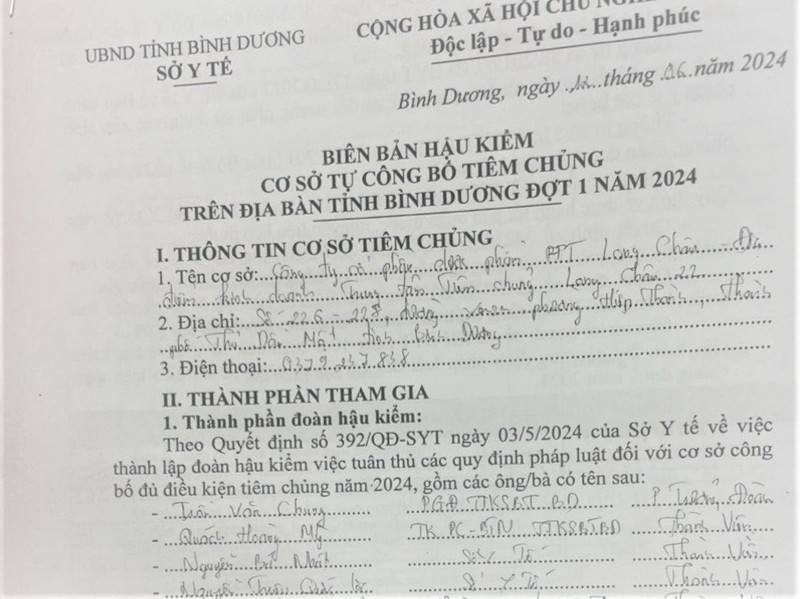 UBND TỈNH BÌNH DƯƠNG
SỞ Y TẾ
CỘNG HÒA XÃ HỘI CHỦ
Độc lập - Tự do - Hạnh phúc
Bình Dương, ngày tháng 06 năm 2024
BIÊN BẢN HẬU KIỂM
CƠ SỞ TỰ CÔNG BỐ TIÊM CHỦNG
TRÊN ĐỊA BÀN TỈNH BÌNH DƯƠNG ĐỢT 1 NĂM 2024
I. THÔNG TIN CƠ SỞ TIÊM CHỦNG
1. Tên cơ sở: Công ty cổ phần dược phẩm FPT Long Châu - Địa
điểm kinh doanh Trung tâm Tiêm chủng Long Châu 22
2. Địa chỉ: Số 226 - 228, đường phường Hiệp Thành, Thành
phố Thủ Dầu Một tỉnh Bình Dương
3. Điện thoại: 0379 237 838
II. THÀNH PHẦN THAM GIA
1. Thành phần đoàn hậu kiểm:
Theo Quyết định số 392/QĐ-SYT ngày 03/5/2024 của Sở Y tế về việc
thành lập đoàn hậu kiểm việc tuân thủ các quy định pháp luật đối với cơ sở công
bố đủ điều kiện tiêm chủng năm 2024, gồm các ông/bà có tên sau:
- Trần Văn Chung PGĐ TTKSBT BD P Trưởng Đoàn
- Quách Hoàng Mỹ TK PC-BTN TTKSBTBD Thành Viên
- Nguyễn Nhất Sở Y Tế Thành Viên
- Nguyễn Sở Y Tế Thành Viên